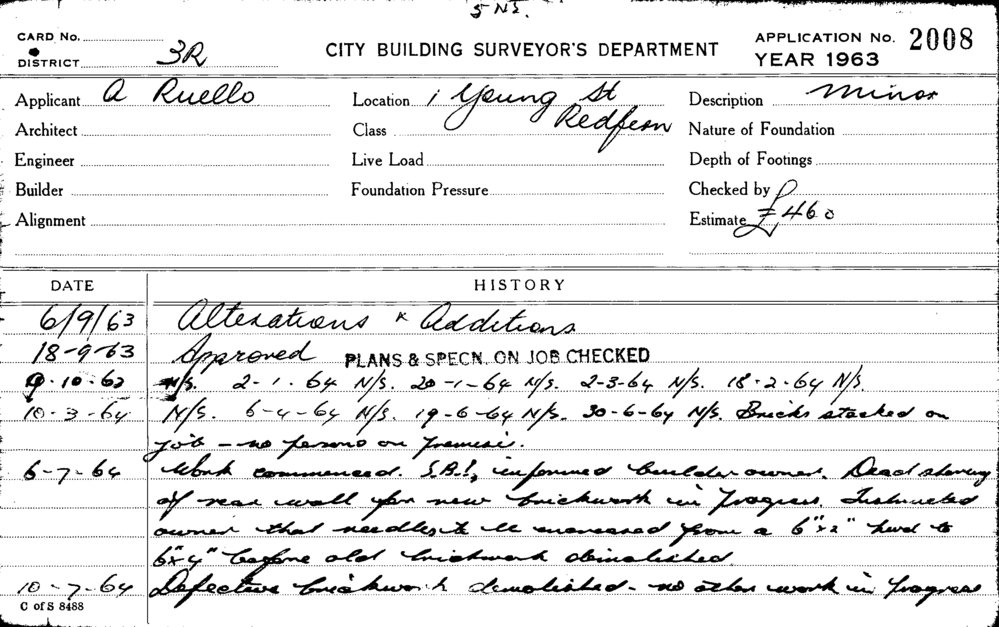 5 N2.
CARD No.
DISTRICT 3R
CITY BUILDING SURVEYOR'S DEPARTMENT
APPLICATION No. 2008
YEAR 1963
Applicant A Ruello
Location 1 Young St
Redfern
Description minor
Architect
Class
Nature of Foundation
Engineer
Live Load
Depth of Footings
Builder
Foundation Pressure
Checked by
Alignment
Estimate £460
DATE HISTORY
6/9/63 Alterations & Additions
18-9-63 Approved PLANS & SPECN. ON JOB CHECKED
9-10-63 N/S. 2-1-64 N/S. 20-1-64 N/S. 2-3-64 N/S. 18-2-64 N/S.
10-3-64 N/S. 6-4-64 N/S. 19-6-64 N/S. 30-6-64 N/S. Bricks stacked on
job - no persons on premise.
6-7-64 Work commenced. informed builder owner. Dead shoring
of rear wall for new brickwork in progress. Instructed
owner that needles to be increased from a 6"x2" hwd to
6"x4" before old brickwork demolished.
10-7-64 Defective brickwork demolished - no other work in progress
C of S 8488